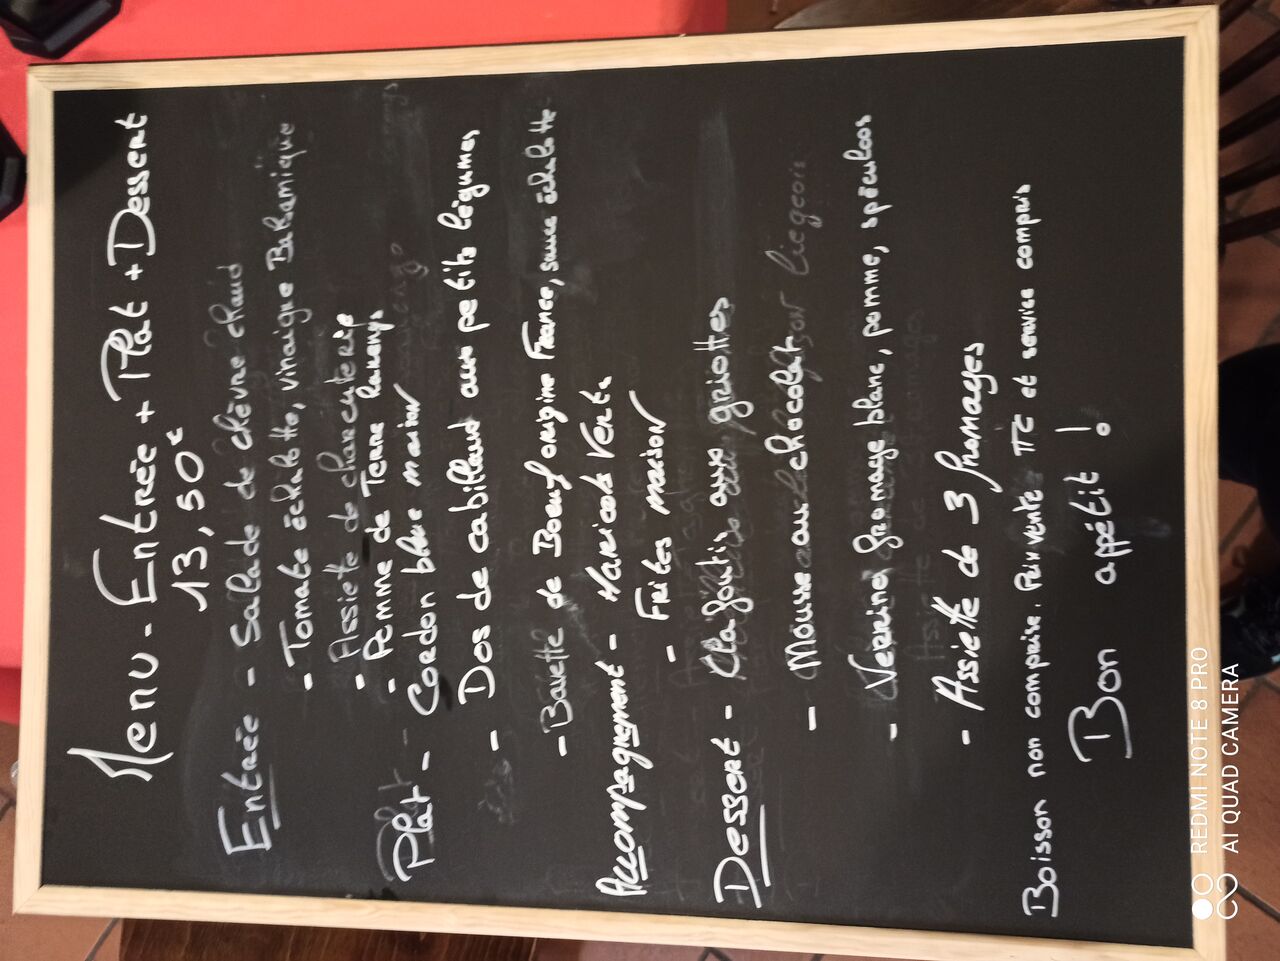 Menu - Entrée + Plat + Dessert
13,50€
Entrée - Salade de chèvre chaud
- Tomate échalotte, vinaigre Balsamique
- Assiette de charcuterie
- Pomme de Terre harengs
Plat - Cordon bleu maison
- Dos de cabillaud aux petits légumes
- Bavette de Boeuf origine France, sauce échalotte
Accompagnement - Haricots Verts
- Frites maison
Dessert - Clafoutis aux griottes
- Mousse au chocolat
- Verrine fromage blanc, pomme, spéculoos
- Assiette de 3 fromages
Boisson non comprise. Prix vente TTC et service compris
Bon appétit !
REDMI NOTE 8 PRO
AI QUAD CAMERA